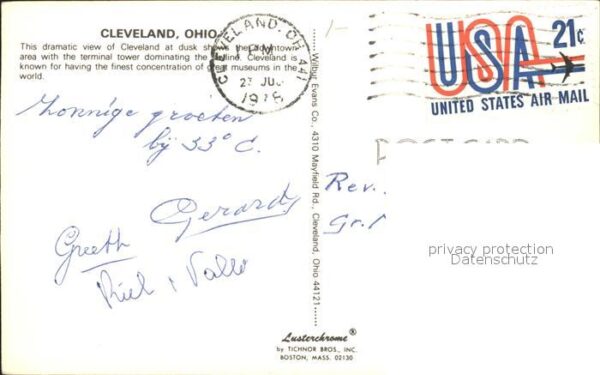 CLEVELAND, OHIO
This dramatic view of Cleveland at dusk shows the downtown
area with the terminal tower dominating the skyline. Cleveland is
known for having the finest concentration of great museums in the
world.
CLEVELAND, OH 441
PM
1976
USA 21c
UNITED STATES AIR MAIL
POST CARD
Zonnige groeten
bij 33° C.
Gerard
Greeth
Rev.
Gr.
Wilbur Evans Co., 4310 Mayfield Rd., Cleveland, Ohio 44121
privacy protection
Datenschutz
Lusterchrome®
by TICHNOR BROS., INC.
BOSTON, MASS. 02130